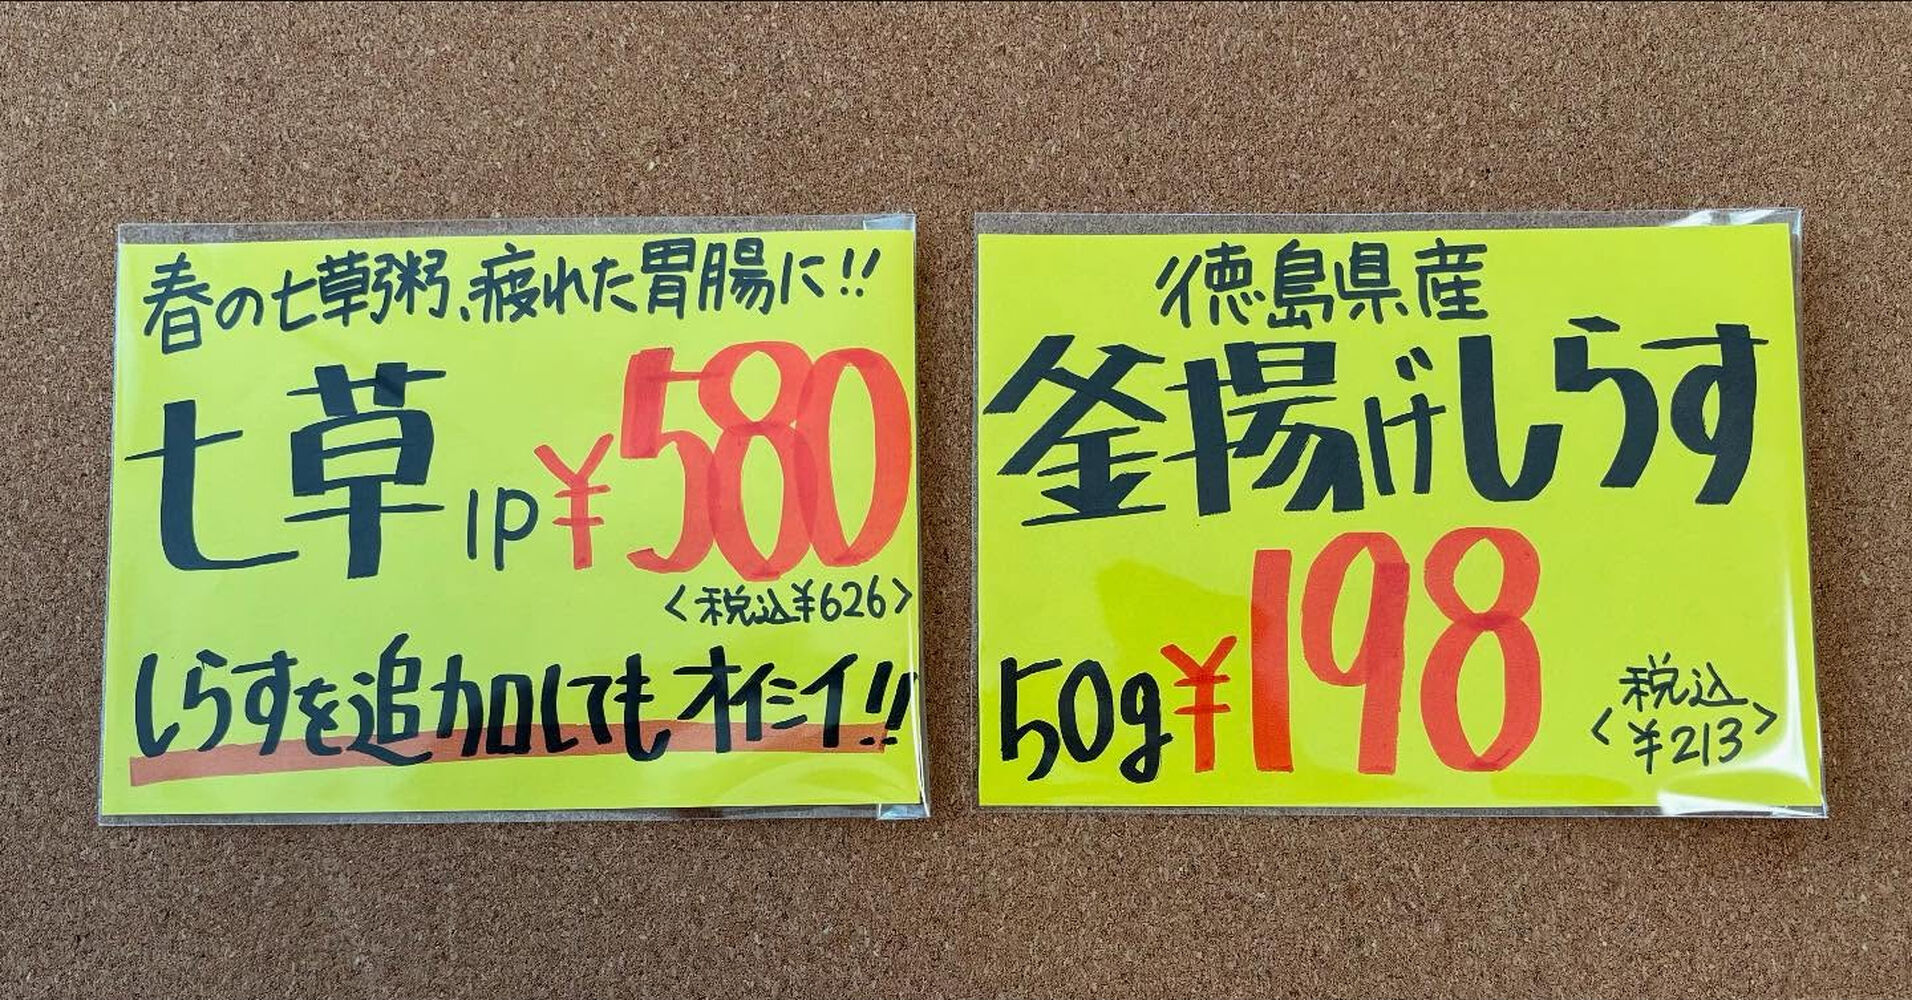 春の七草粥、疲れた胃腸に!!
七草 1P ¥580
<税込¥626>
しらすを追加してもオイシイ!!
徳島県産
釜揚げしらす
50g ¥198
税込
<¥213>